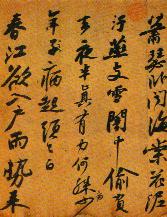 蕭瑟臥聞海棠花泥
污燕支雪闇中偷負
去夜半真有力何殊少
病
年子病起頭已白
春江欲入戶雨勢來